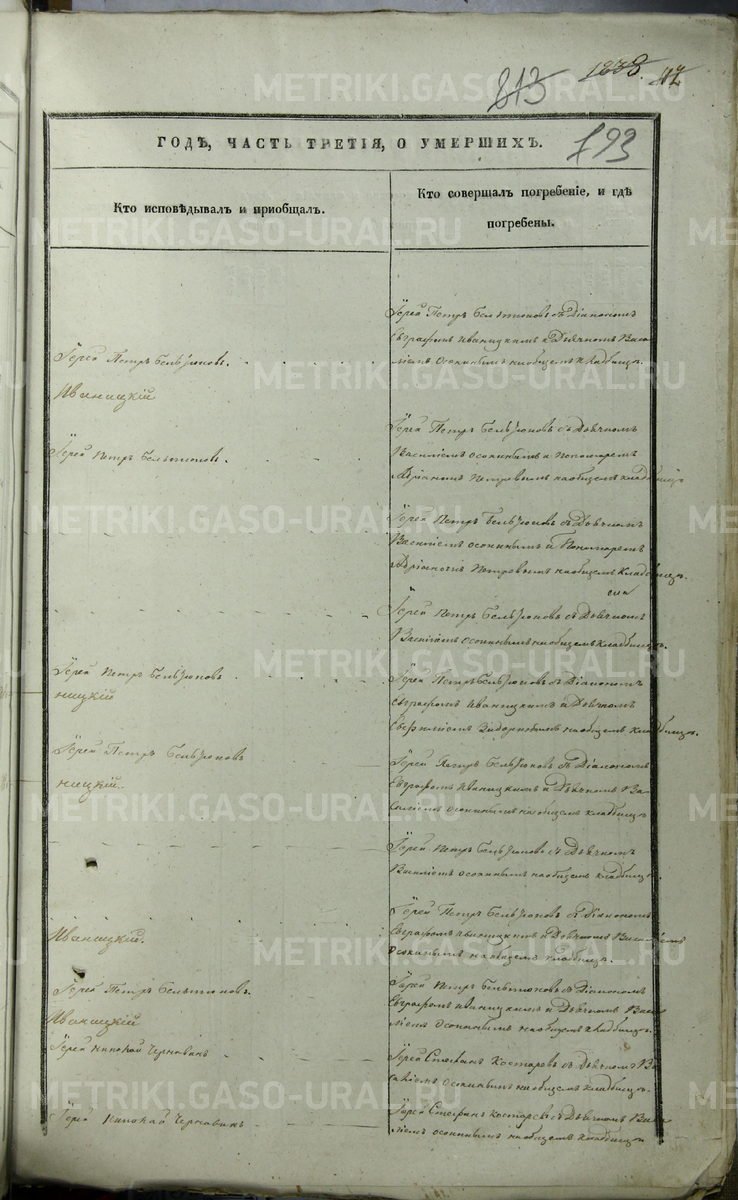 1838.
813
42
793
ГОДѢ, ЧАСТЬ ТРЕТІЯ, О УМЕРШИХЪ.
Кто исповѣдывалъ и пріобщалъ.
Кто совершалъ погребеніе, и гдѣ
погребены.
Іерей Петръ Бельтюковъ съ Діакономъ
Евграфомъ Иваницкимъ и Дьячкомъ Васи
ліемъ Осокинымъ на общемъ кладбищѣ.
Іерей Петръ Бельтюковъ.
Иваницкій
Іерей Петръ Бельтюковъ съ Дьячкомъ
Василіемъ Осокинымъ и Пономаремъ
Петровымъ на общемъ кладбищѣ
Іерей Петръ Бельтюковъ.
Іерей Петръ Бельтюковъ съ Дьячкомъ
Василіемъ Осокинымъ и Пономаремъ
Петровымъ на общемъ кладбищѣ.
Іерей Петръ Бельтюковъ съ Дьячкомъ
Василіемъ Осокинымъ на общемъ кладбищѣ.
Іерей Петръ Бельтюковъ
ницкій
Іерей Петръ Бельтюковъ съ Діакономъ
Евграфомъ Иваницкимъ и Дьячкомъ
на общемъ кладбищѣ.
Іерей Петръ Бельтюковъ
ницкій.
Іерей Петръ Бельтюковъ съ Діакономъ
Евграфомъ Иваницкимъ и Дьячкомъ Ва-
силіемъ Осокинымъ на общемъ кладбищѣ
Іерей Петръ Бельтюковъ съ Дьячкомъ
Василіемъ Осокинымъ на общемъ кладбищѣ.
Иваницкій.
Іерей Петръ Бельтюковъ съ Діакономъ
Евграфомъ Иваницкимъ и Дьячкомъ Василіемъ
Осокинымъ на общемъ кладбищѣ.
Іерей Петръ Бельтюковъ.
Иваницкій
Іерей Петръ Бельтюковъ съ Діакономъ
Евграфомъ Иваницкимъ и Дьячкомъ Васи
ліемъ Осокинымъ на общемъ кладбищѣ.
Іерей Николай Чернавинъ
Іерей Стефанъ Костаревъ съ Дьячкомъ Ва
силіемъ Осокинымъ на общемъ кладбищѣ.
Іерей Николай Чернавинъ
Іерей Стефанъ Костаревъ съ Дьячкомъ Васи
ліемъ Осокинымъ на общемъ кладбищѣ
METRIKI.GASO-URAL.RU